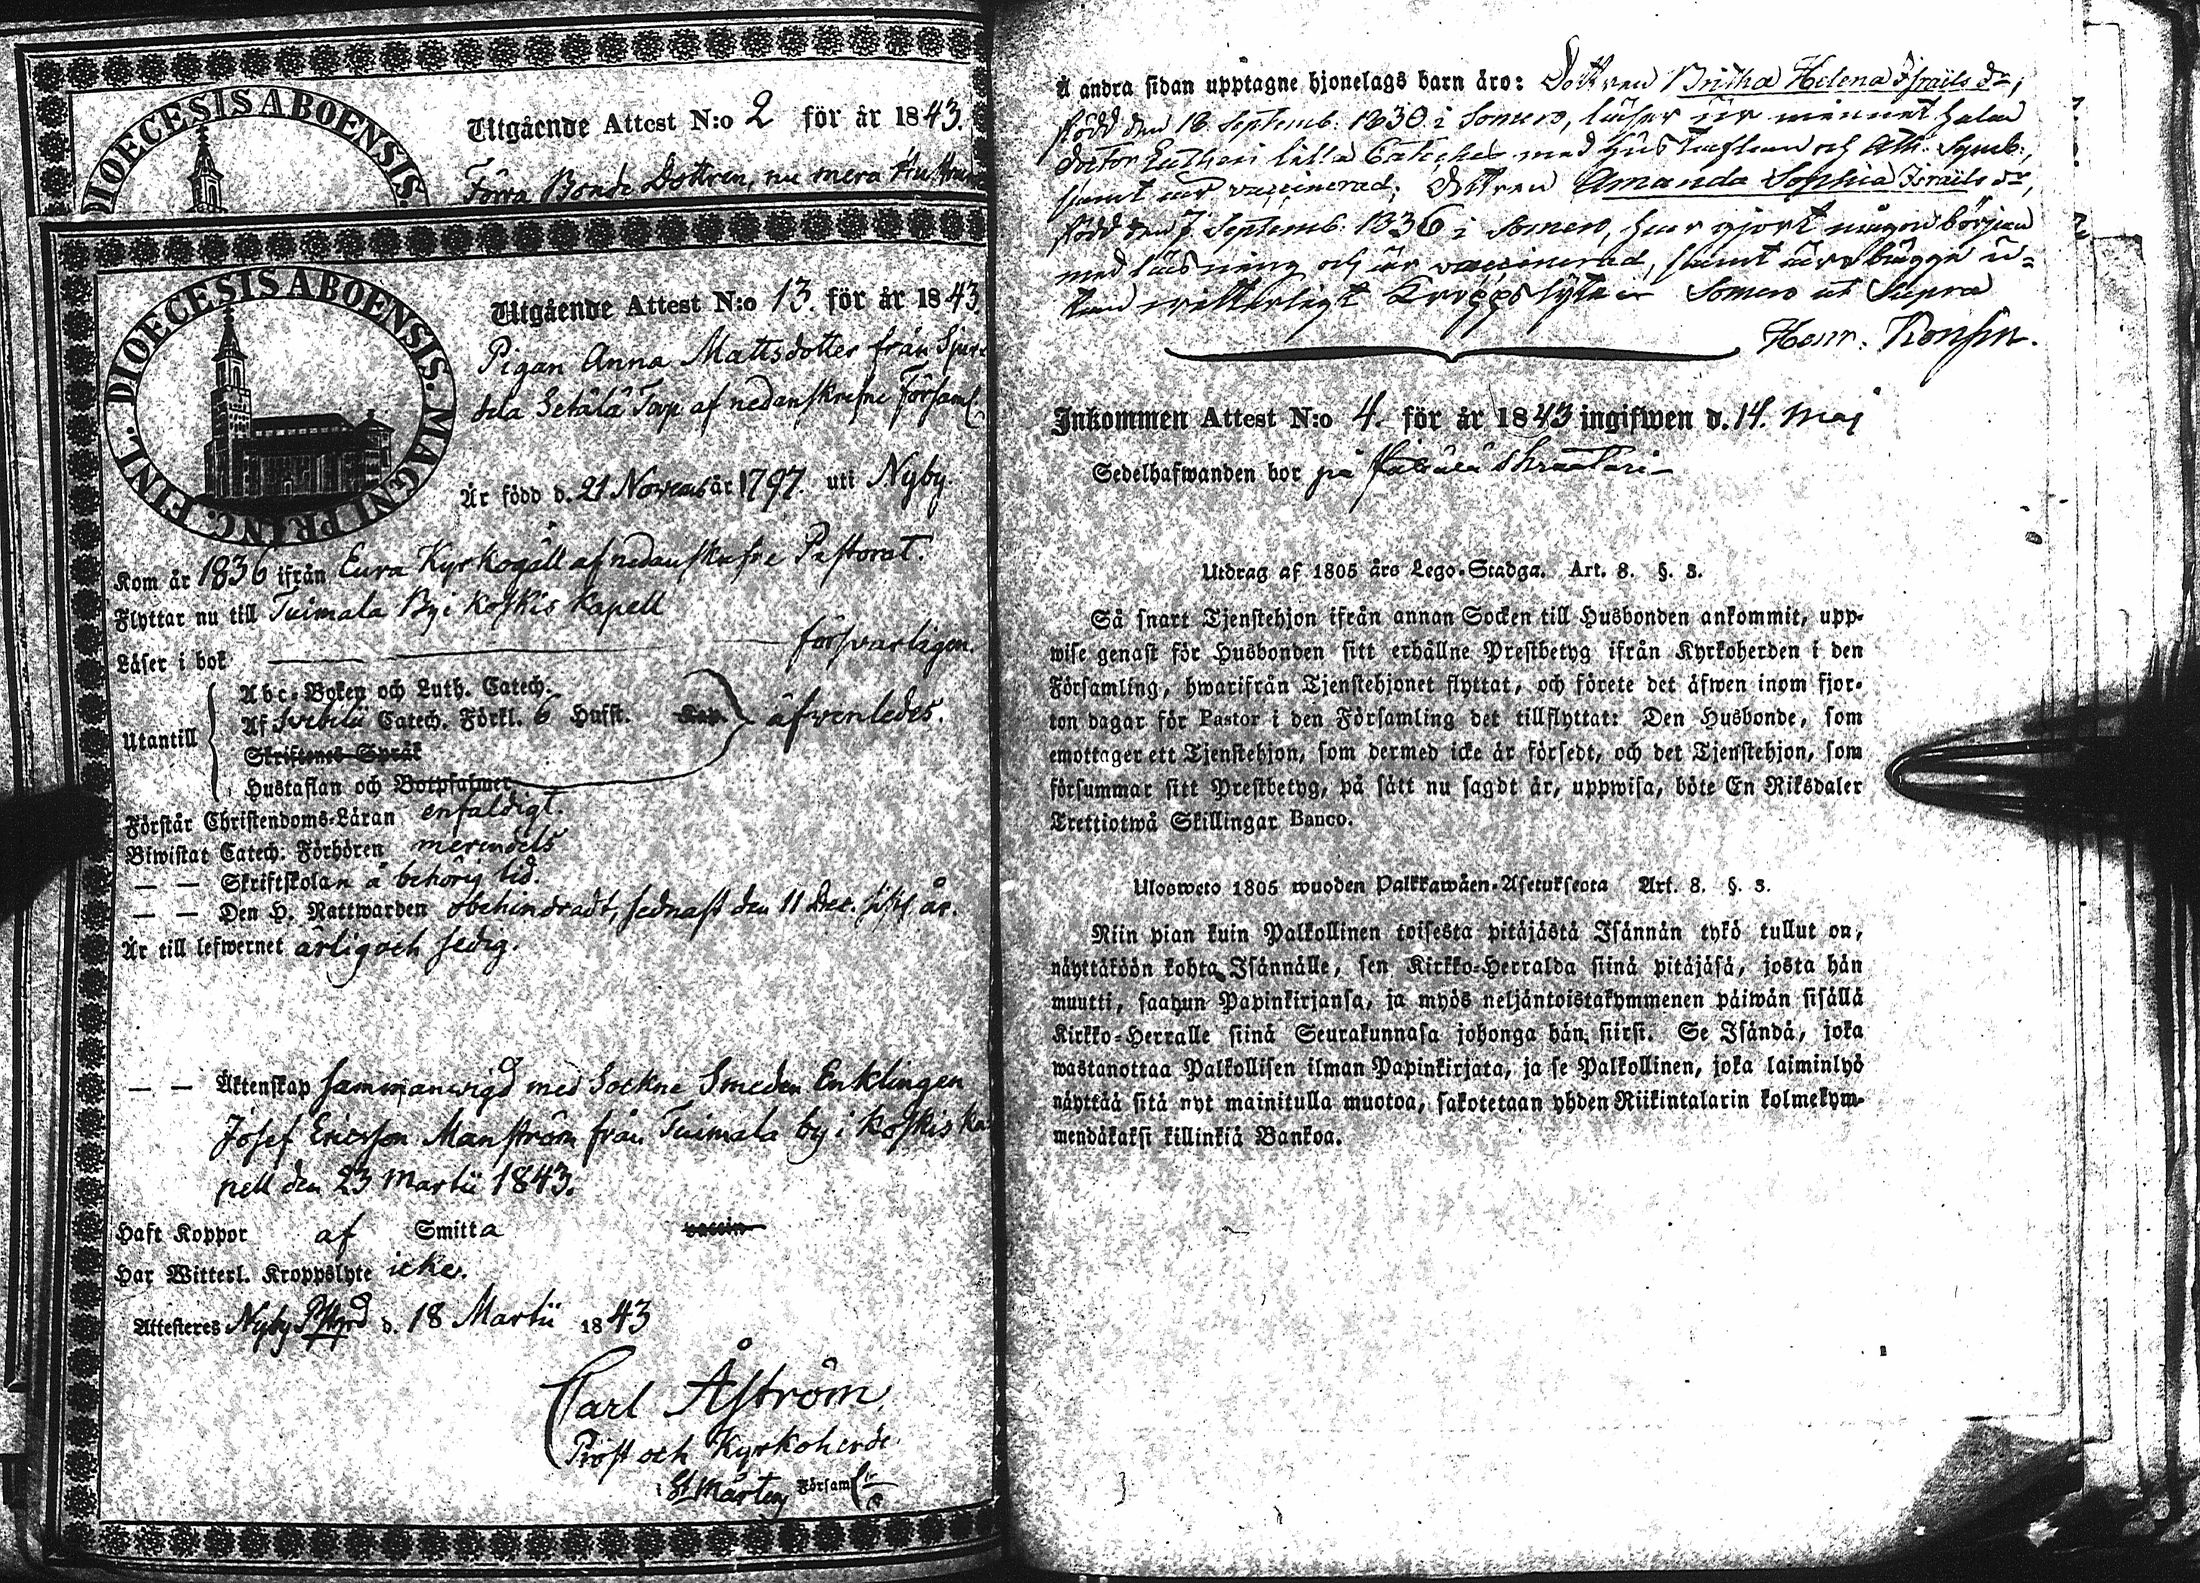 DIOECESIS ABOENSIS.
Utgående Attest N:o 2 för år 1843.
Förra Bonde Dottren, nu mera Hustrun
DIOECESIS ABOENSIS. MAGNI PRINC. FINL.
Utgående Attest N:o 13. för år 1843.
Pigan Anna Mattsdotter från
Setälä Torp af nedanskrefne Församl.
Är född d. 21 Novemb. år 1797. uti Nyby.
Kom år 1836 ifrån Eura Kyrkogäll af nedanskrefne Pastorat.
Flyttar nu till Tuimala By i Koskis Kapell
Läser i bok försvarligen.
Utantill
Abc-Boken och Luth. Catech.
Af Svebelii Catech. Förkl. 6 Hufst. Kap. äfvenledes.
Skriftenes Språk
Hustaflan och Botpsalmer
Förstår Christendoms-Läran enfaldigt.
Biwistat Catech. Förhören merendels
— — Skriftskolan å behörig tid.
— — Den H. Nattwarden obehindradt, sednast den 11 Dec. sistl. år.
Är till lefwernet ärlig och sedig.
— — Äktenskap sammanvigd med Sockne Smeden Enklingen
Josef Ericsson Manström från Tuimala by i Koskis Ka
pell den 23 Martii 1843.
Haft Koppor af Smitta vaccin
Har Witterl. Kroppslyte icke.
Attesteres Nyby d. 18 Martii 1843
Carl Åström
Prost och Kyrkoherde
i St Mårtens Församl
Å andra sidan upptagne hjonelags barn äro: Dottren Britha Helena Israels dr,
född den 18 Septemb. 1830 i Somero, läser ur minnet halva
doctor Lutheri lilla Cateches med Hustaflan och Ath. Symb.,
samt är vaccinerad; Dottren Amanda Sophia Israels dr,
född den 7 Septemb. 1836 i Somero, har gjort någon början
med läsning och är vaccinerad, samt äro bägge u=
tan witterligt Kroppslyte Somero ut Supra
Henr.
Inkommen Attest N:o 4. för år 1843 ingifwen d. 14. Maj
Sedelhafwanden bor på
Utdrag af 1805 års Lego-Stadga. Art. 8. §. 3.
Så snart Tjenstehjon ifrån annan Socken till Husbonden ankommit, upp-
wise genast för Husbonden sitt erhållne Prestbetyg ifrån Kyrkoherden i den
Församling, hwarifrån Tjenstehjonet flyttat, och förete det äfwen inom fjor-
ton dagar för Pastor i den Församling det tillflyttat: Den Husbonde, som
emottager ett Tjenstehjon, som dermed icke är försedt, och det Tjenstehjon, som
försummar sitt Prestbetyg, på sätt nu sagdt är, uppwisa, böte En Riksdaler
Trettiotwå Skillingar Banco.
Ulosweto 1805 wuoden Palkkawäen-Asetuksesta Art. 8. §. 3.
Niin pian kuin Palkollinen toisesta pitäjästä Isännän tykö tullut on,
näyttäköön kohta Isännälle, sen Kirkko-Herralda siinä pitäjäsä, josta hän
muutti, saadun Papinkirjansa, ja myös neljäntoistakymmenen päiwän sisällä
Kirkko-Herralle siinä Seurakunnasa johonga hän siirsi. Se Isändä, joka
wastanottaa Palkollisen ilman Papinkirjata, ja se Palkollinen, joka laiminlyö
näyttää sitä nyt mainitulla muotoa, sakotetaan yhden Riikintalarin kolmekym-
mendäkaksi killinkiä Bankoa.